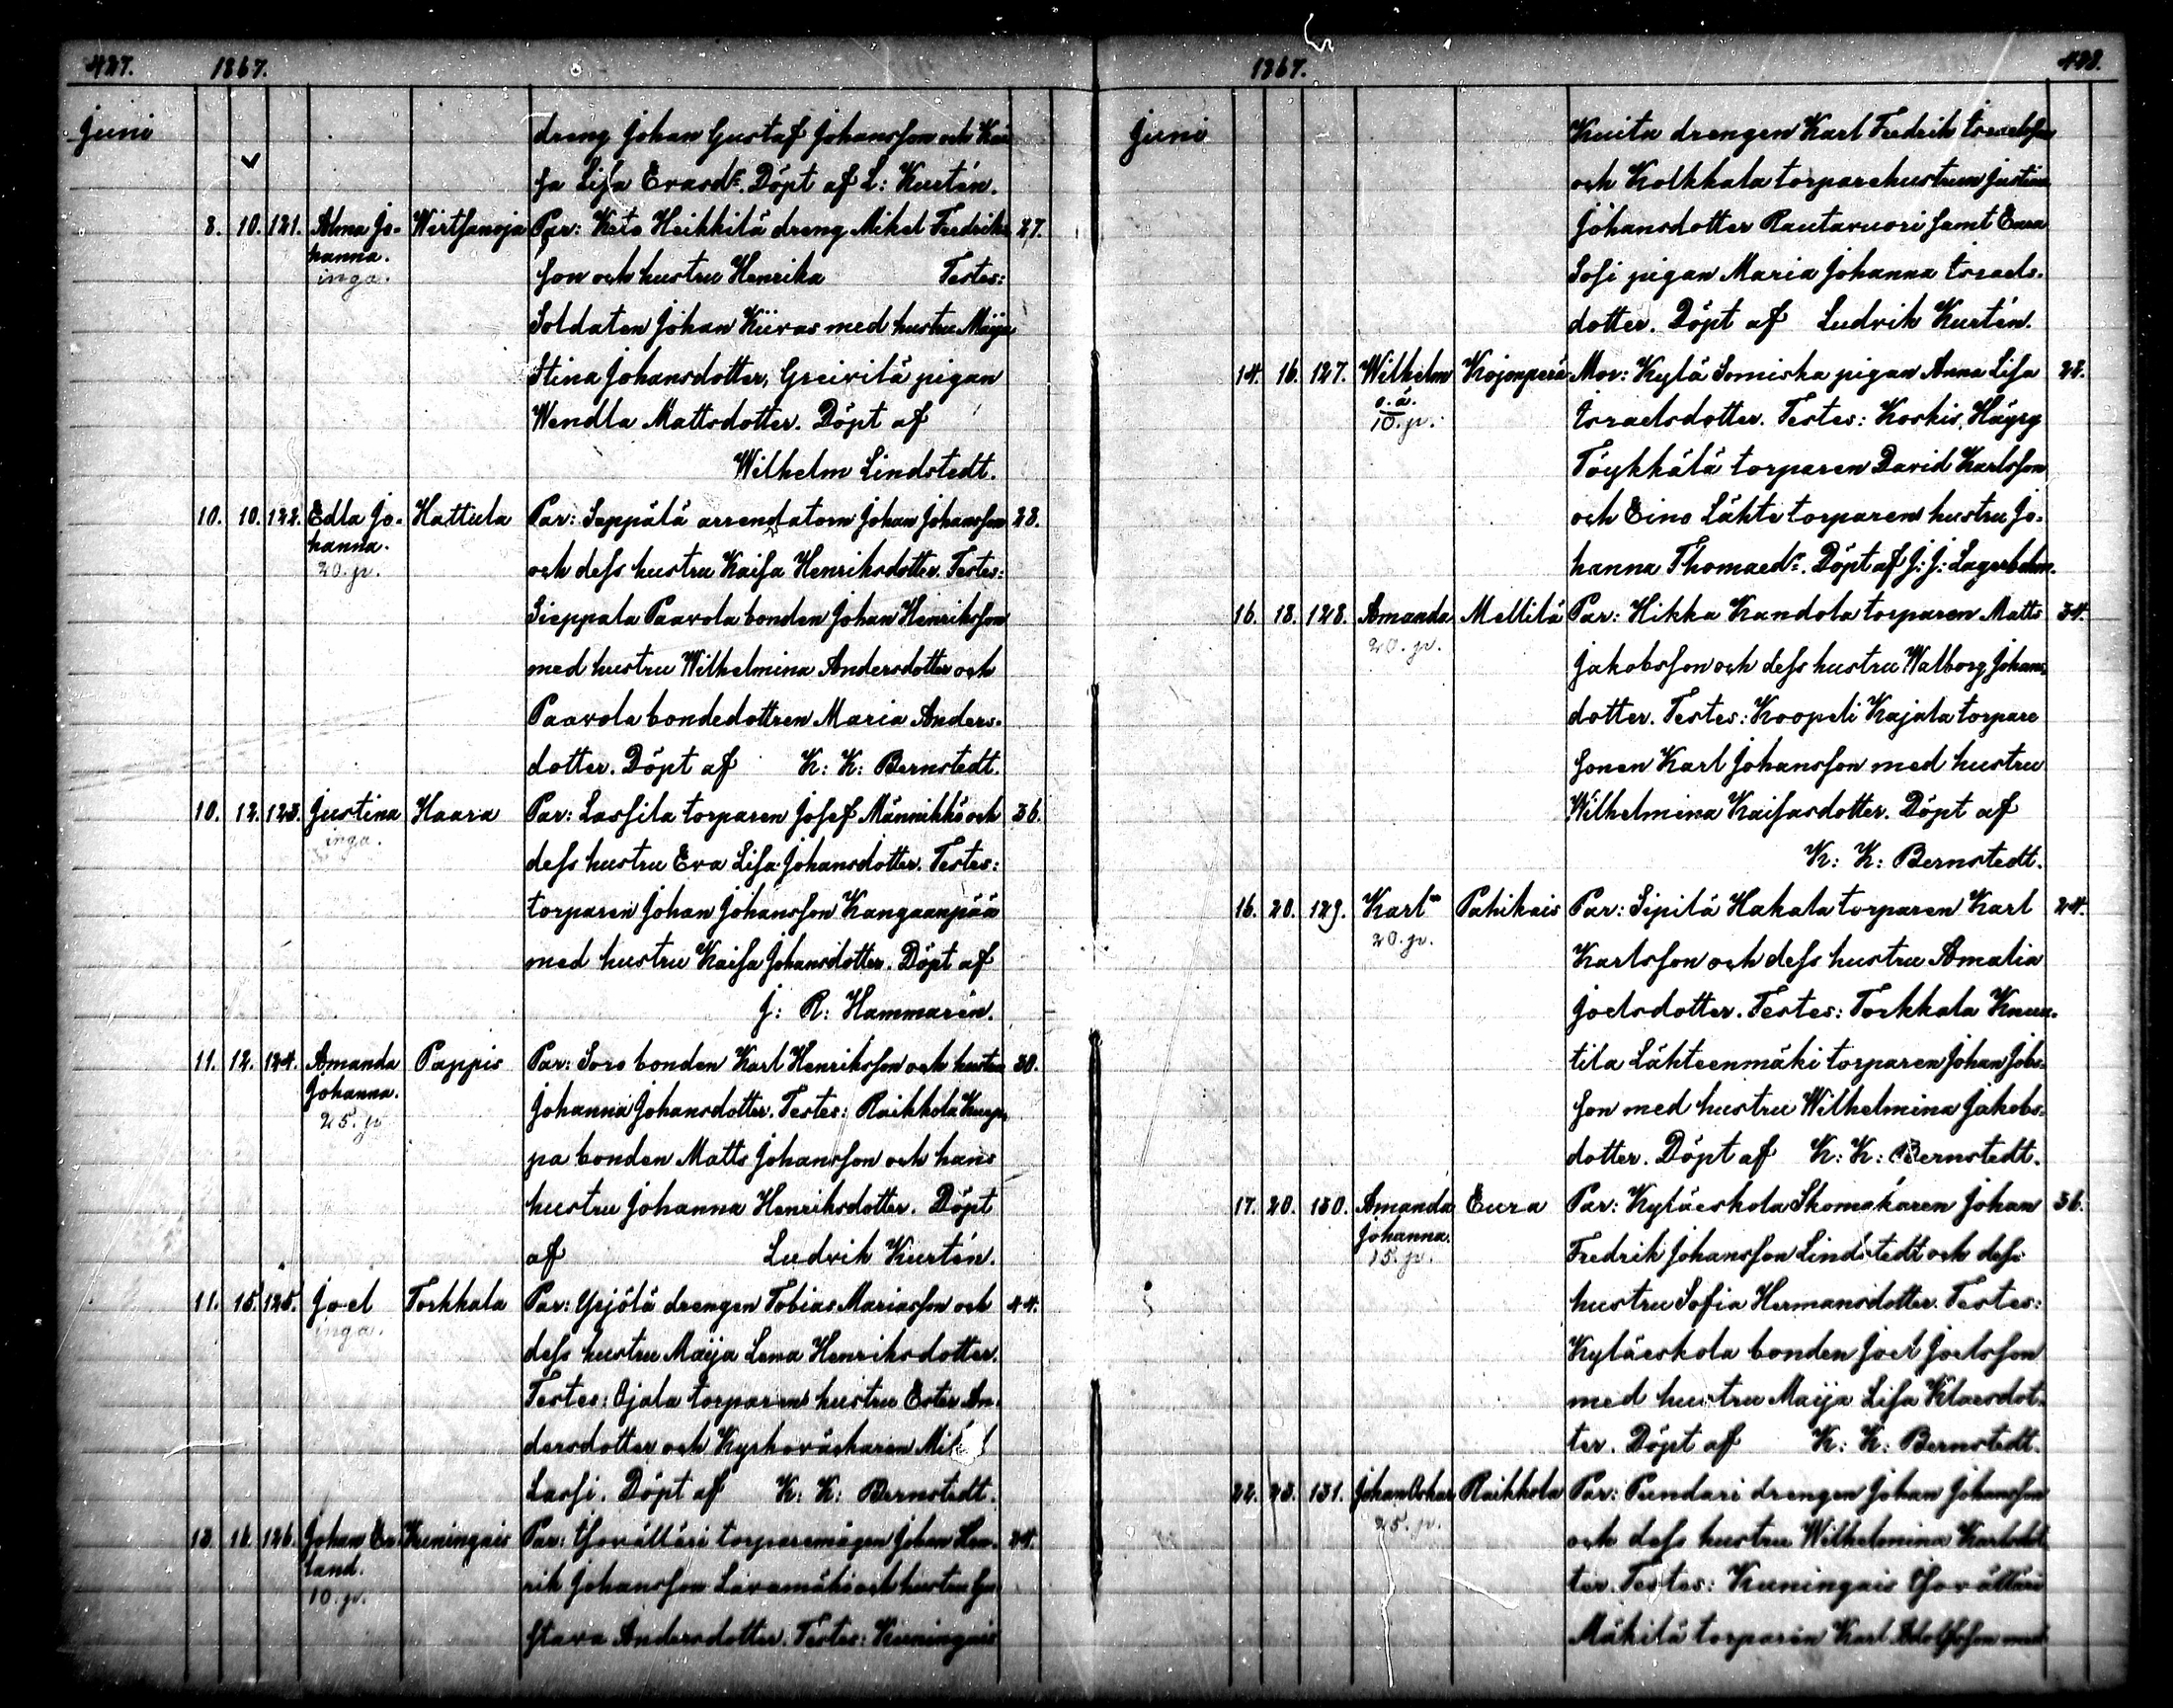 427. 1867.
Juni
dreng Johan Gustaf Johansson och Kai-
sa Lisa Evasdr. Döpt af L: Kurtén.
8. 10. 121. Alma Jo- Wirtsanoja Par: Keto Heikkilä dreng Mikel Fredriks- 27.
hanna.
inga. son och hustru Henrika Testes:
Soldaten Johan Kiiras med hustru Maija
Stina Johansdotter, Greivilä pigan
Wendla Mattsdotter. Döpt af
Wilhelm Lindstedt.
10. 10. 122. Edla Jo- Hattula Par: Seppälä arrendatorn Johan Johansson 28.
hanna.
20. p. och dess hustru Kaisa Henriksdotter. Testes:
Sieppala Paavola bonden Johan Henriksson
med hustru Wilhelmina Andersdotter och
Paavola bondedottren Maria Anders-
dotter. Döpt af K: K: Bernstedt.
10. 12. 123. Justina Haara Par: Lassila torparen Josef Männikkö och 36.
inga.
dess hustru Eva Lisa Johansdotter. Testes:
torparen Johan Johansson Kangaanpää
med hustru Kaisa Johansdotter. Döpt af
J: R: Hammarén.
11. 12. 124. Amanda Pappis Par: Soro bonden Karl Henriksson och hustru 30.
Johanna.
25. p. Johanna Johansdotter. Testes: Raikkola Kurp-
pa bonden Matts Johansson och hans
hustru Johanna Henriksdotter. Döpt
af Ludvik Kurtén.
11. 15. 125. Joel Torkkala Par: Yrjölä drengen Tobias Mariasson och 44.
inga.
dess hustru Maija Lena Henriksdotter.
Testes: Ojala torparens hustru Ester An-
dersdotter och Kyrkoväktaren
Lassi. Döpt af K: K: Bernstedt.
13. 16. 126. Johan Er- Kuningais Par: Isovälläri torparemågen Johan Hen- 24.
land.
10. p. rik Johansson Lavamäki och hustru Gu-
stava Andersdotter. Testes: Kuningais
1867. 428.
Juni
Knita drengen Karl Fredrik Israelsson
och Kolkkala torparehustrun Justina
Johansdotter Rautavuori samt Eura
Sofi pigan Maria Johanna Israels-
dotter. Döpt af Ludvik Kurtén.
14. 16. 127. Wilhelm Kojonperä Mor: Kylä Somiska pigan Anna Lisa 22.
o. ä.
10. p. Israelsdotter. Testes: Koskis, Häyry
Töykkälä torparen David Karlsson
och Eino Lähte torparens hustru Jo-
hanna Thomasdr. Döpt af J: J: Lagerbohm.
16. 18. 128. Amanda Mellilä Par: Hikka Kandola torparen Matts 34.
20. p.
Jakobsson och dess hustru Walborg Johans-
dotter. Testes: Koopeli Kajala torpare
sonen Karl Johansson med hustru
Wilhelmina Kaisasdotter. Döpt af
K: K: Bernstedt.
16. 20. 129. Karl Pahikais Par: Sipilä Hakala torparen Karl 24.
20. p.
Karlsson och dess hustru Amalia
Joelsdotter. Testes: Torkkala Knuu-
tila Lähteenmäki torparen Johan Johs-
son med hustru Wilhelmina Jakobs-
dotter. Döpt af K: K: Bernstedt.
17. 20. 130. Amanda Eura Par: Kyläeskola Skomakaren Johan 36.
Johanna.
15. p. Fredrik Johansson Lindstedt och dess
hustru Sofia Hermansdotter. Testes:
Kyläeskola bonden Joel Joelsson
med hustru Maija Lisa Klaesdot-
ter. Döpt af K: K: Bernstedt.
22. 23. 131. Johan Oskar Raikkola Par: Pundari drengen Johan Johansson
25. p.
och dess hustru Wilhelmina Karlsdot-
ter. Testes: Kuningais Isovälläri
Mäkilä torparen Karl Adolfsson med